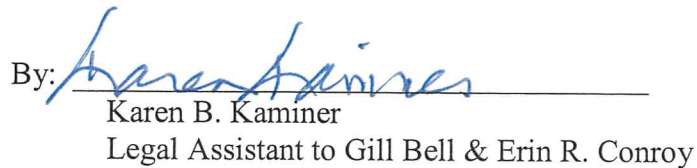 By: Karen Kaminer
Karen B. Kaminer
Legal Assistant to Gill Bell & Erin R. Conroy